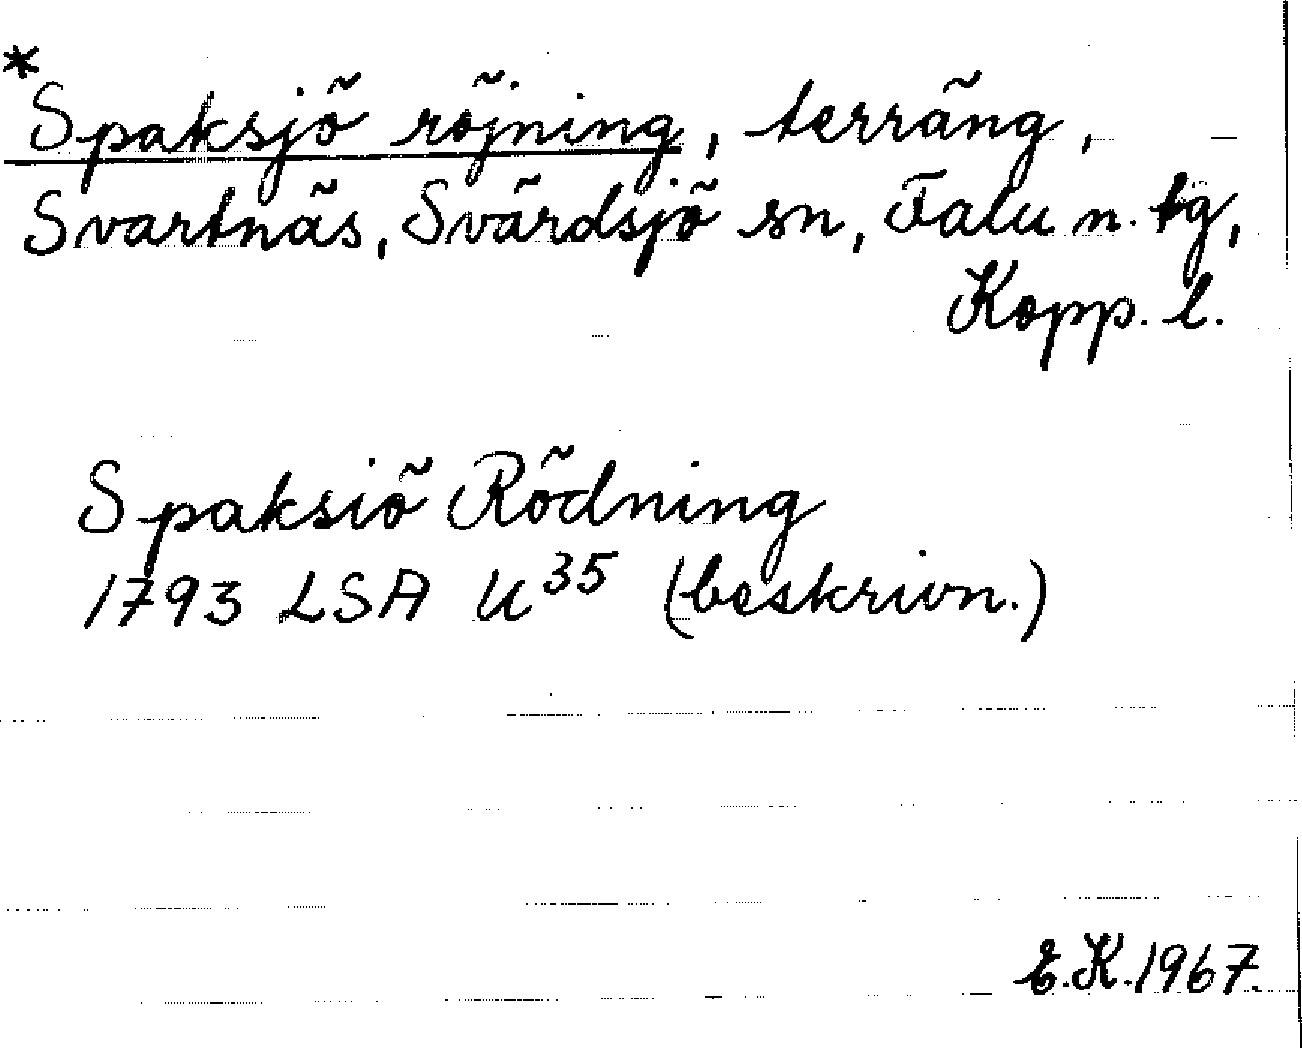 *
Spaksjö röjning, terräng,
Svartnäs, Svärdsjö sn, Falu n. tg,
Kopp. l.
Spaksiö Rödning
1793 LSA U³⁵ (beskrivn.)
E.K. 1967.